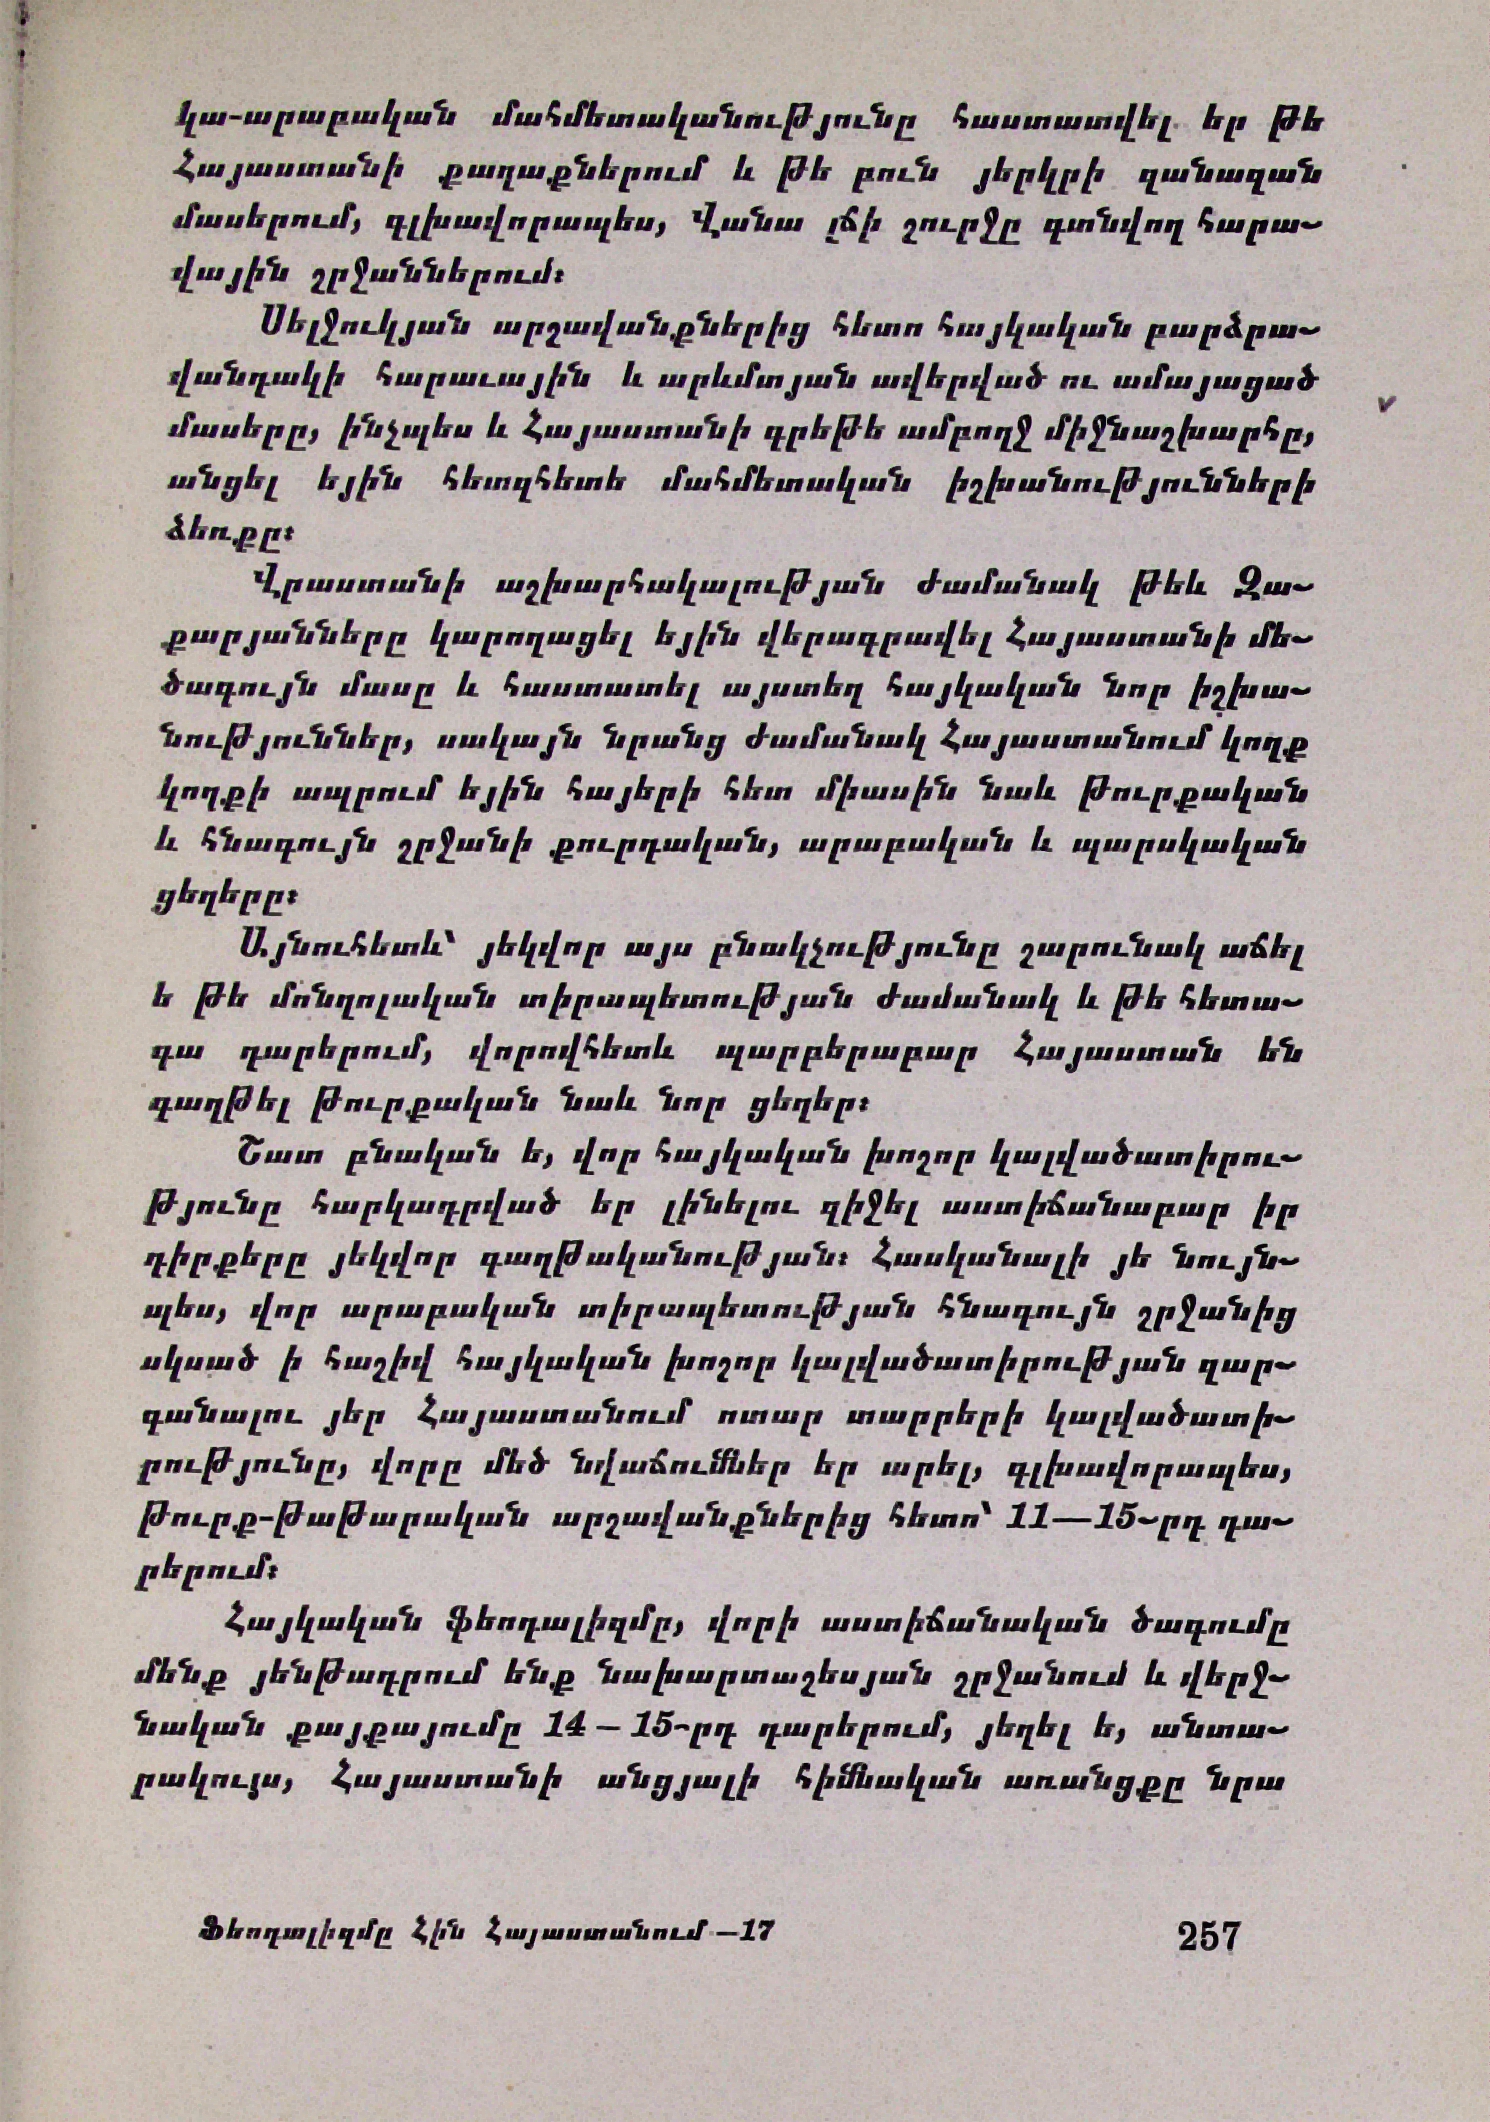 կա-արաբական մահմետականությունը հաստատվել եր թե
Հայաստանի քաղաքներում և թե բուն յերկրի զանազան
մասերում, գլխավորապես, Վանա լճի շուրջը գտնվող հարա֊
վային շրջաններում։
Սելջուկյան արշավանքներից հետո հայկական բարձրա֊
վանդակի հարաւային և արևմտյան ավերված ու ամայացած
մասերը, ինչպես և Հայաստանի գրեթե ամբողջ միջնաշխարհը,
անցել եյին հետզհետե մահմետական իշխանությունների
ձեռքը։
Վրաստանի աշխարհակալության ժամանակ թեև Զա֊
քարյանները կարողացել եյին վերագրավել Հայաստանի մե֊
ծագույն մասը և հաստատել այստեղ հայկական նոր իշխա֊
նություններ, սակայն նրանց ժամանակ Հայաստանում կողք
կողքի ապրում եյին հայերի հետ միասին նաև թուրքական
և հնագույն շրջանի քուրդական, արաբական և պարսկական
ցեղերը։
Այնուհետև՝ յեկվոր այս բնակչությունը շարունակ աճել
ե թե մոնղոլական տիրապետության ժամանակ և թե հետա֊
գա դարերում, վորովհետև պարբերաբար Հայաստան են
գաղթել թուրքական նաև նոր ցեղեր։
Շատ բնական ե, վոր հայկական խոշոր կալվածատիրու֊
թյունը հարկադրված եր լինելու զիջել աստիճանաբար իր
դիրքերը յեկվոր գաղթականության։ Հասկանալի յե նույն֊
պես, վոր արաբական տիրապետության հնագույն շրջանից
սկսած ի հաշիվ հայկական խոշոր կալվածատիրության զար֊
գանալու յեր Հայաստանում ոտար տարրերի կալվածատի֊
րությունը, վորը մեծ նվաճումներ եր արել, գլխավորապես,
թուրք-թաթարական արշավանքներից հետո՝ 11—15֊րդ դա֊
րերում։
Հայկական ֆեոդալիզմը, վորի աստիճանական ծագումը
մենք յենթադրում ենք նախարտաշեսյան շրջանում և վերջ֊
նական քայքայումը 14 – 15֊րդ դարերում, յեղել ե, անտա֊
րակույս, Հայաստանի անցյալի հիմնական առանցքը նրա
Ֆեոդալիզմը Հին Հայաստանում —17
257